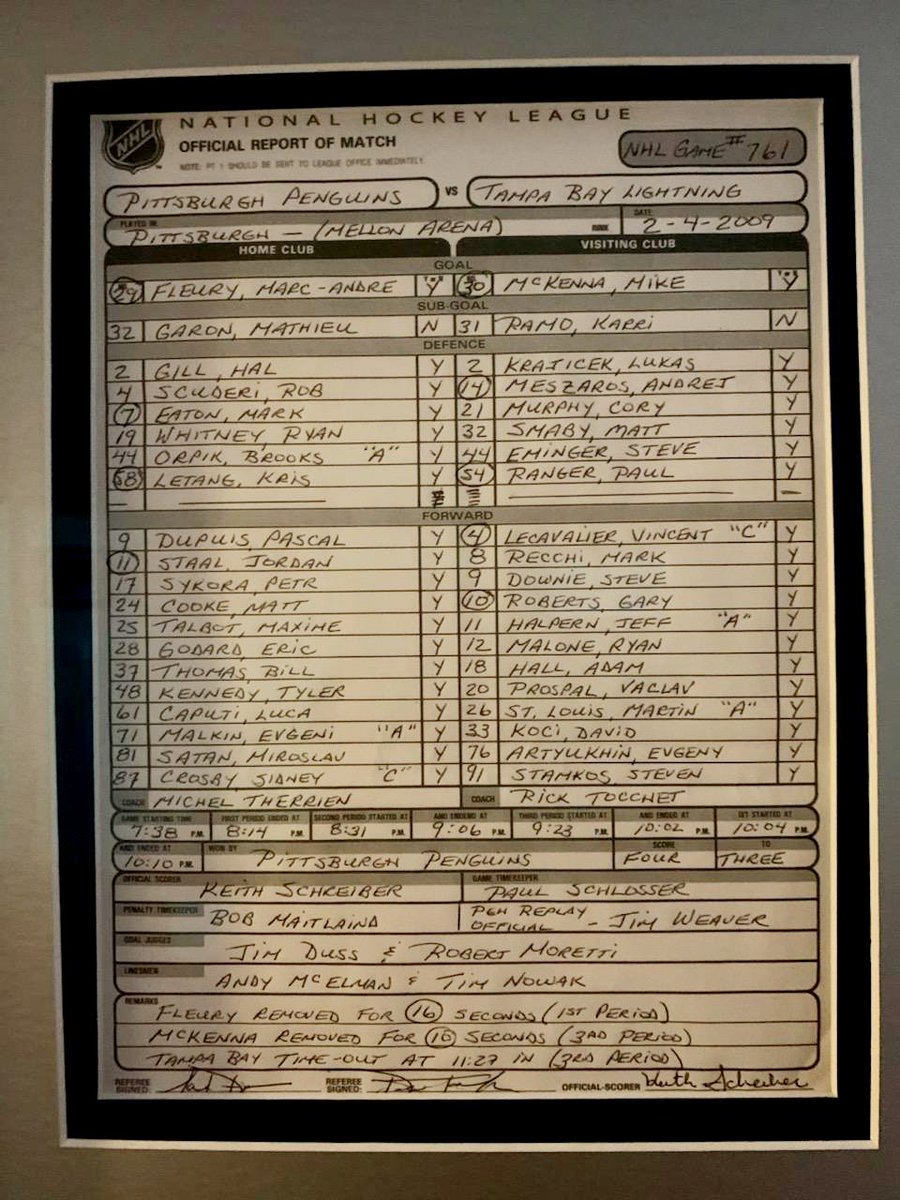 NHL
NATIONAL HOCKEY LEAGUE
OFFICIAL REPORT OF MATCH
NOTE: PT 1 SHOULD BE SENT TO LEAGUE OFFICE IMMEDIATELY.
NHL GAME # 761
PITTSBURGH PENGUINS VS TAMPA BAY LIGHTNING
PLAYED IN PITTSBURGH - (MELLON ARENA) RINK DATE 2-4-2009
HOME CLUB VISITING CLUB
GOAL
29 FLEURY, MARC-ANDRE Y 30 MCKENNA, MIKE Y
SUB-GOAL
32 GARON, MATHIEU N 31 RAMO, KARRI N
DEFENCE
2 GILL, HAL Y 2 KRAJICEK, LUKAS Y
4 SCUDERI, ROB Y 14 MESZAROS, ANDREJ Y
7 EATON, MARK Y 21 MURPHY, CORY Y
19 WHITNEY, RYAN Y 32 SMABY, MATT Y
44 ORPIK, BROOKS "A" Y 44 EMINGER, STEVE Y
58 LETANG, KRIS Y 54 RANGER, PAUL Y
FORWARD
9 DUPUIS, PASCAL Y 4 LECAVALIER, VINCENT "C" Y
11 STAAL, JORDAN Y 8 RECCHI, MARK Y
17 SYKORA, PETR Y 9 DOWNIE, STEVE Y
24 COOKE, MATT Y 10 ROBERTS, GARY Y
25 TALBOT, MAXIME Y 11 HALPERN, JEFF "A" Y
28 GODARD, ERIC Y 12 MALONE, RYAN Y
37 THOMAS, BILL Y 18 HALL, ADAM Y
48 KENNEDY, TYLER Y 20 PROSPAL, VACLAV Y
61 CAPUTI, LUCA Y 26 ST. LOUIS, MARTIN "A" Y
71 MALKIN, EVGENI "A" Y 33 KOCI, DAVID Y
81 SATAN, MIROSLAV Y 76 ARTYUKHIN, EVGENY Y
87 CROSBY, SIDNEY "C" Y 91 STAMKOS, STEVEN Y
COACH MICHEL THERRIEN COACH RICK TOCCHET
GAME STARTING TIME FIRST PERIOD ENDED AT SECOND PERIOD STARTED AT AND ENDED AT THIRD PERIOD STARTED AT AND ENDED AT O/T STARTED AT
7:38 P.M. 8:14 P.M. 8:31 P.M. 9:06 P.M. 9:23 P.M. 10:02 P.M. 10:04 P.M.
AND ENDED AT WON BY SCORE TO
10:10 P.M. PITTSBURGH PENGUINS FOUR THREE
OFFICIAL SCORER KEITH SCHREIBER GAME TIMEKEEPER PAUL SCHLOSSER
PENALTY TIMEKEEPER BOB MAITLAIND PGH REPLAY
OFFICIAL - JIM WEAVER
GOAL JUDGES JIM DUSS & ROBERT MORETTI
LINESMEN ANDY MCELMAN & TIM NOWAK
REMARKS
FLEURY REMOVED FOR 16 SECONDS (1ST PERIOD)
MCKENNA REMOVED FOR 10 SECONDS (3RD PERIOD)
TAMPA BAY TIME-OUT AT 11:27 IN (3RD PERIOD)
REFEREE SIGNED: REFEREE SIGNED: OFFICIAL-SCORER Keith Schreiber